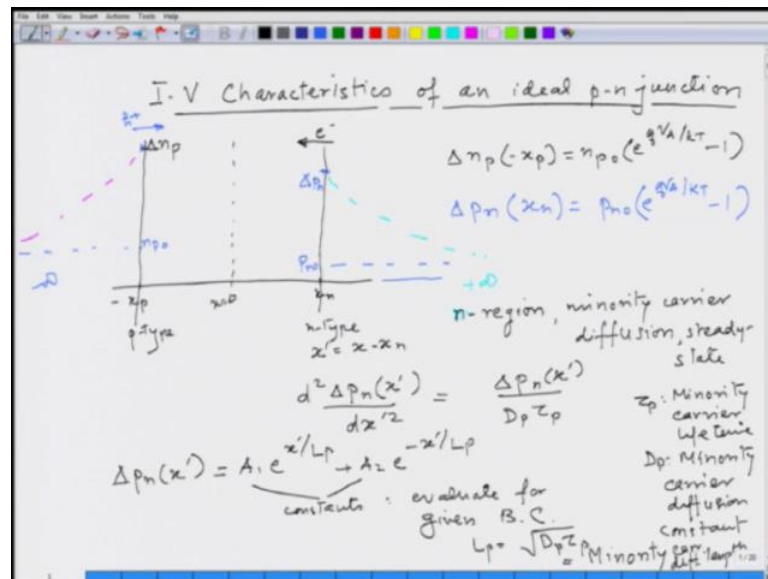 File Edit View Insert Actions Tools Help
I-V Characteristics of an ideal p-n junction
h+
Δnp
e-
Δnp(-xp) = npo(e^qVA/kT -1)
Δpn
Δpn(xn) = pno(e^qVA/KT -1)
npo
pno
-∞
+∞
-xp
x=0
xn
p-type
n-type
x' = x-xn
n-region, minority carrier
diffusion, steady-
state
d² Δpn(x') / dx'² = Δpn(x') / Dp τp
τp: Minority
carrier
lifetime
Dp- Minority
carrier
diffusion
constant
Δpn(x') = A1 e^x'/Lp + A2 e^-x'/Lp
constants : evaluate for
given B.C.
Lp = √Dp τp = Minority
diff. length
1/20